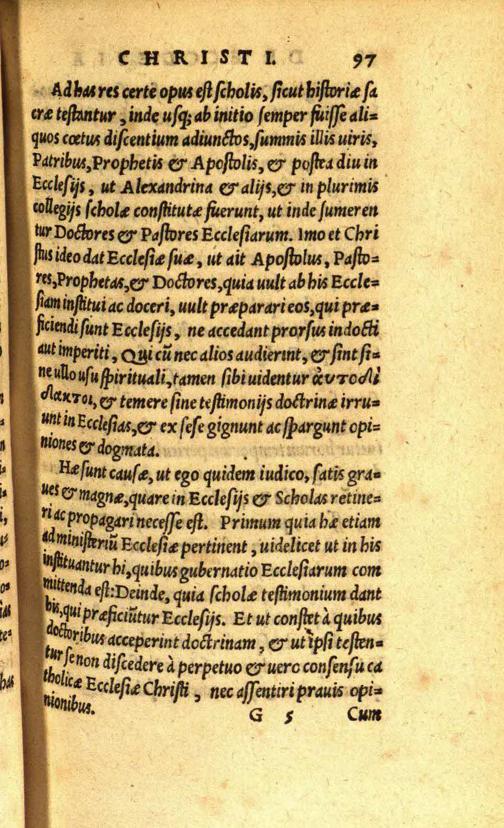 CHRISTI. 97
Ad has res certe opus est scholis, sicut historiæ sa
cræ testantur, inde usq; ab initio semper fuisse ali=
quos cœtus discentium adiunctos, summis illis uiris,
Patribus, Prophetis & Apostolis, & postea diu in
Ecclesijs, ut Alexandrina & alijs, & in plurimis
collegijs scholæ constitutæ fuerunt, ut inde sumeren
tur Doctores & Pastores Ecclesiarum. Imo et Chri
stus ideo dat Ecclesiæ suæ, ut ait Apostolus, Pasto=
res, Prophetas, & Doctores, quia uult ab his Eccle=
siam institui ac doceri, uult præparari eos, qui præ=
ficiendi sunt Ecclesijs, ne accedant prorsus indocti
aut imperiti, Qui cũ nec alios audierint, & sint si=
ne ullo usu spirituali, tamen sibi uidentur αὐτοδί
δακτοι, & temere sine testimonijs doctrinæ irru=
unt in Ecclesias, & ex sese gignunt ac spargunt opi=
niones & dogmata.
Hæ sunt causæ, ut ego quidem iudico, satis gra=
ues & magnæ, quare in Ecclesijs & Scholas retine=
ri ac propagari necesse est. Primum quia hæ etiam
ad ministeriũ Ecclesiæ pertinent, uidelicet ut in his
instituantur hi, quibus gubernatio Ecclesiarum com
mittenda est: Deinde, quia scholæ testimonium dant
his, qui præficiũtur Ecclesijs. Et ut constet à quibus
doctoribus acceperint doctrinam, & ut ipsi testen=
tur se non discedere à perpetuo & uero consensu ca
tholicæ Ecclesiæ Christi, nec assentiri prauis opi=
nionibus.
G 5 Cum